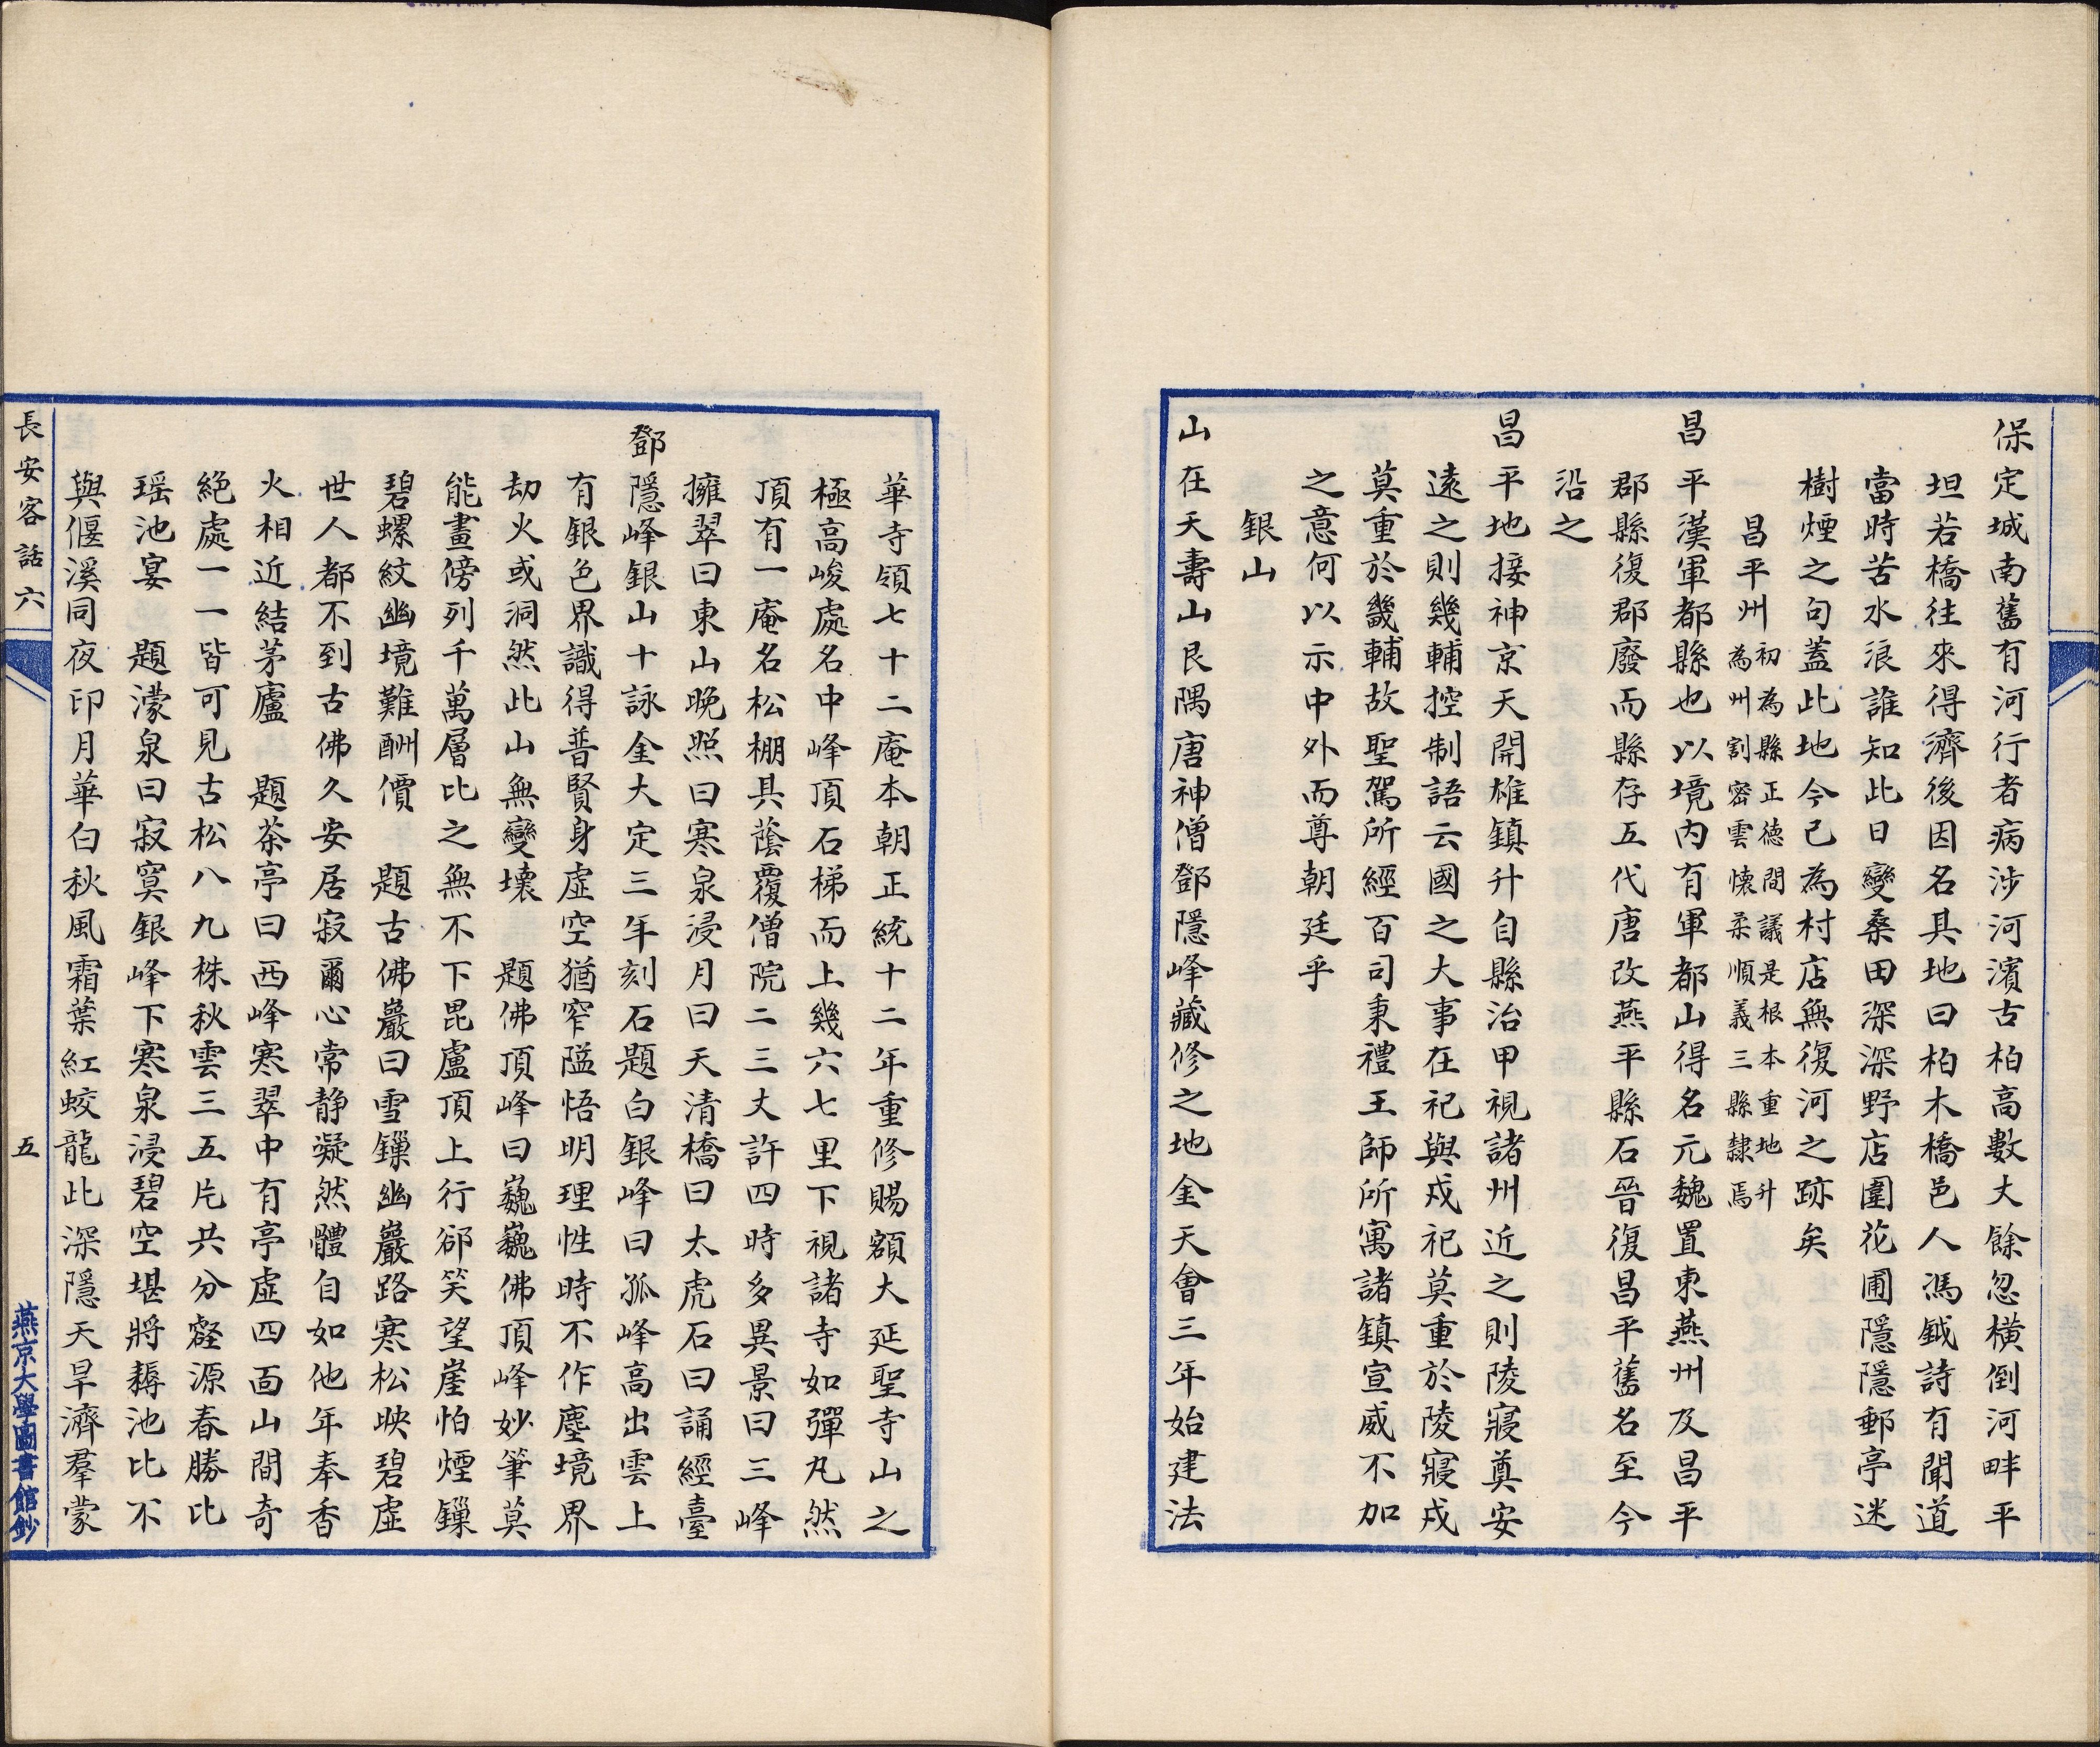 保定城南舊有河行者病涉河濱古柏高數丈餘忽橫倒河畔平
坦若橋往來得濟後因名具地曰柏木橋邑人馮鉞詩有聞道
當時苦水浪誰知此日變桑田深深野店圍花圃隱隱郵亭迷
樹煙之句蓋此地今已為村店無復河之跡矣
昌平州初為縣正德間議是根本重地升
為州割密雲懷柔順義三縣隸焉
昌平漢軍都縣也以境內有軍都山得名元魏置東燕州及昌平
郡縣復郡廢而縣存五代唐改燕平縣石晉復昌平舊名至今
沿之
昌平地接神京天開雄鎮升自縣治甲視諸州近之則陵寢奠安
遠之則幾輔控制語云國之大事在祀與戎祀莫重於陵寢戎
莫重於畿輔故聖駕所經百司秉禮王師所寓諸鎮宣威不加
之意何以示中外而尊朝廷乎
銀山
山在天壽山艮隅唐神僧鄧隱峰藏修之地金天會三年始建法
華寺領七十二庵本朝正統十二年重修賜額大延聖寺山之
極高峻處名中峰頂石梯而上幾六七里下視諸寺如彈丸然
頂有一庵名松棚具蔭覆僧院二三丈許四時多異景曰三峰
擁翠曰東山晚照曰寒泉浸月曰天清橋曰太虎石曰誦經臺
鄧隱峰銀山十詠金大定三年刻石題白銀峰曰孤峰高出雲上
有銀色界識得普賢身虛空猶窄隘悟明理性時不作塵境界
劫火或洞然此山無變壞　題佛頂峰曰巍巍佛頂峰妙筆莫
能畫傍列千萬層比之無不下毘盧頂上行郤笑望崖怕煙鏁
碧螺紋幽境難酬價　題古佛巖曰雪鏁幽巖路寒松映碧虛
世人都不到古佛久安居寂爾心常静凝然體自如他年奉香
火相近結茅廬　題茶亭曰西峰寒翠中有亭虛四面山間奇
絕處一一皆可見古松八九株秋雲三五片共分壑源春勝比
瑶池宴　題濛泉曰寂寞銀峰下寒泉浸碧空堪將耨池比不
與偃溪同夜印月華白秋風霜葉紅蛟龍此深隱天旱濟羣蒙
長安客話六
五
燕京大學圖書館鈔